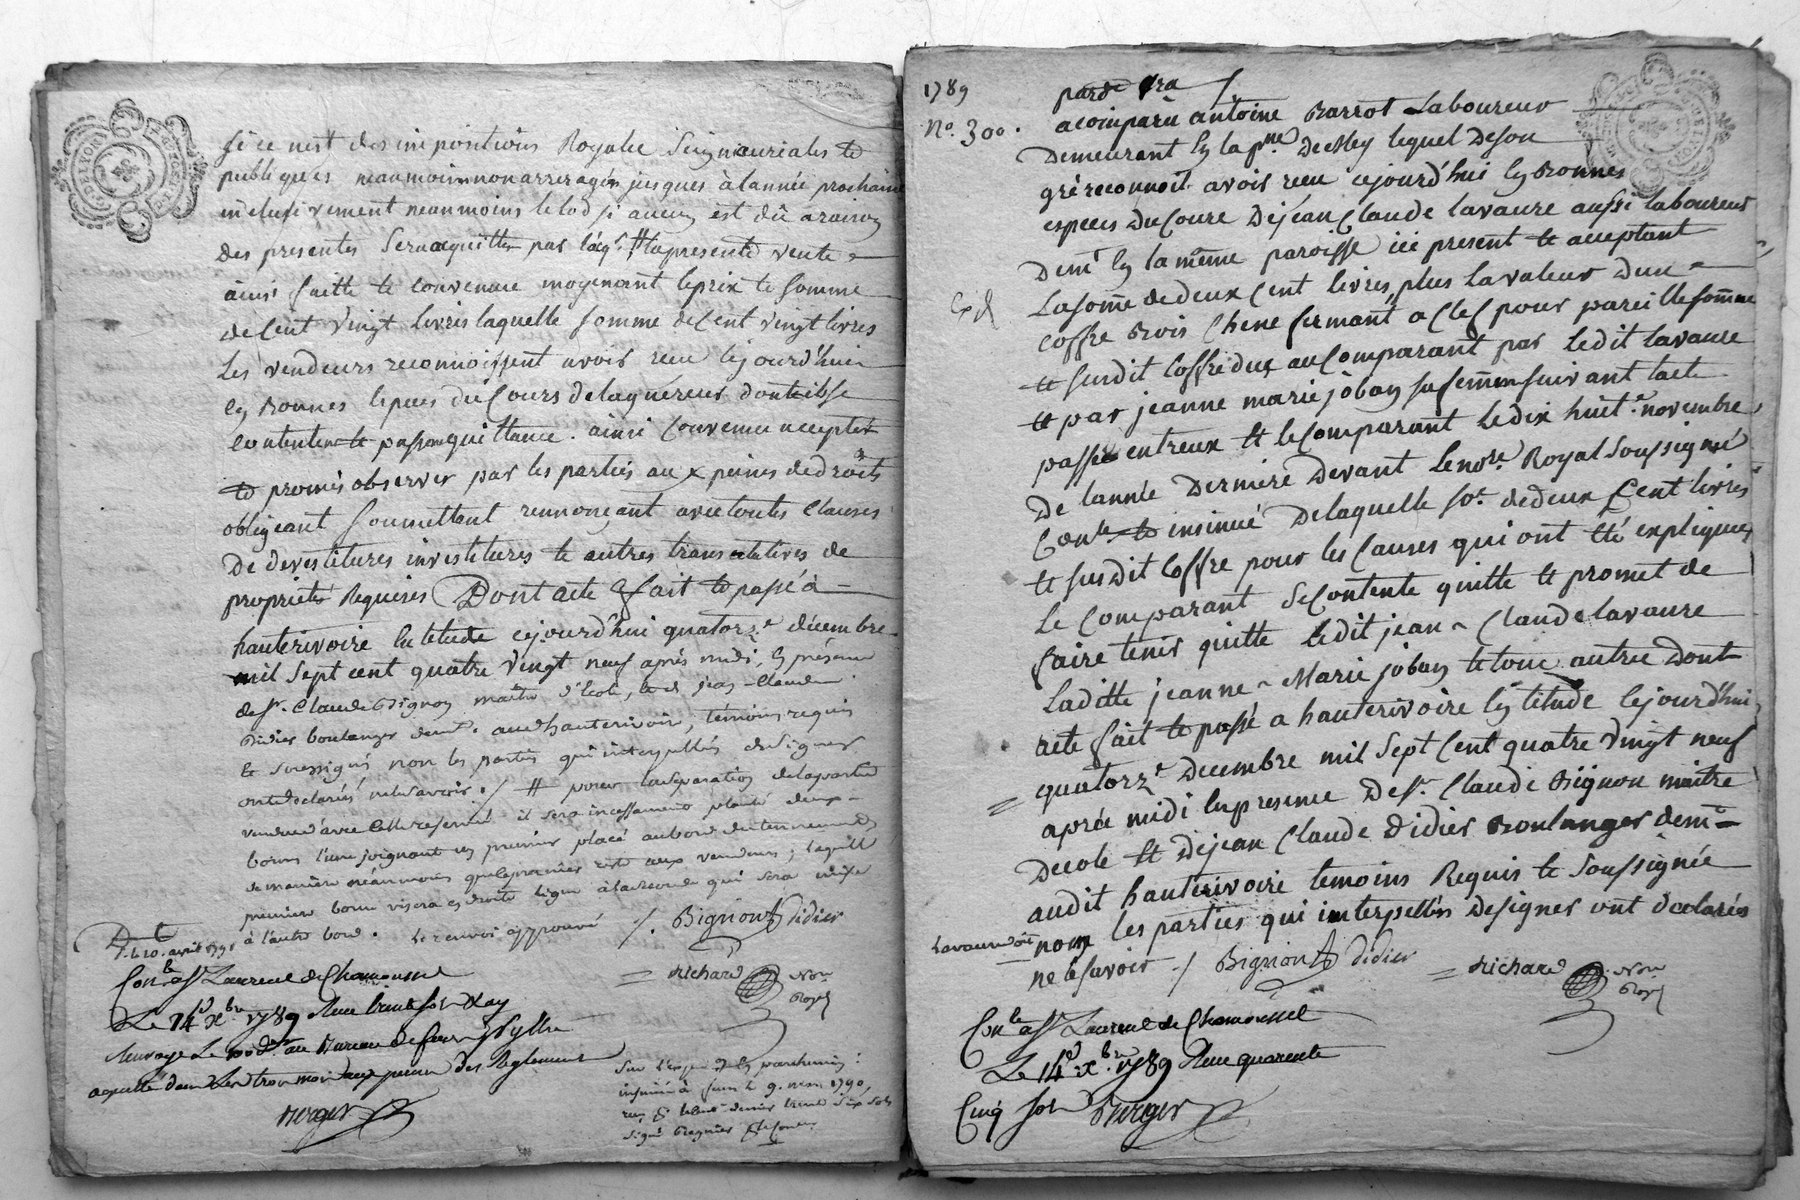 si ce n'est des impositions Royalle Seigneuriales et
publiques neanmoins non arreragés jusques à l'année prochaine
inclusivement neanmoins le lod si aucun est dû a raison
des presentes sera acquitter par l'aqr. # la presente vente
ainsi faitte et convenue moyenant le prix et somme
de Cent vingt livres laquelle somme de Cent vingt livres
les vendeurs reconnoissent avoir reçu cejourd'hui
en Bonnes especes du Cours de laquéreur dont ils se
contentent et passent quittance. ainsi convenu accepté
et promis observer par les parties aux peines de droits
obligeant soumettant rennonçant avec toutes clauses
De devestitures investitures et autres translatives de
propriété Requises Dont acte fait et passé à
hauterivoire en etude cejourd'hui quatorze décembre
mil sept cent quatre vingt neuf après midi, en présence
de Sr. Claude Bignon maître d'école, et de jean-Claude
Didier boulanger demt. audt hauterivoir, témoins requis
et soussignés non les parties qui interpellées de signer
ont déclarés ne le savoir ./ # pour la séparation de la partie
vendue d'avec celle reservée il sera incessamment planté deux
bornes l'une joignant un premier placé au bord du tennement
de manière néanmoins que le premier reste aux vendeurs; laquelle
première borne visera en droite ligne à la seconde qui sera mise
à l'autre bord. le renvoi approuvé ./. Bignon Didier
D. le 10. avril 1791
= Richard Nore Royal
Conle. à St Laurent de Chamousset
Le 14 Xbre 1789 Reçu trente sols
Renvoyé Le au Bureau de
acquitté dans les trois mois aux peines des Reglements
Berger
Sur l'exped. en parchemin:
insinué à le 9. mars 1790,
reçu livres deniers trente six sols
Signé
1789
No. 300.
pard. Nre /
a comparu antoine Barrot Laboureur
Demeurant en la pne. lequel De son
gré reconnoit avoir reçu cejourd'hui en Bonnes
especes Du Cours De jean Claude lavaure aussi laboureur
Demt en la même paroisse ici present et acceptant
La somme de deux cent livres plus la valeur d'un
Exp
coffre Bois Chene fermant a clef pour pareille somme
et susdit Coffre dux au Comparant par ledit lavaure
et par jeanne marie joban sa femme suivant l'acte
passé entreux et le Comparant le dix huit.e novembre
De l'année Dernière Devant Le nore Royal soussigné
Conlé. et insinué De laquelle sor. de deux Cent livres
et susdit Coffre pour les Causes qui ont été expliquées
Le Comparant se contente quitte et promet de
faire tenir quitte ledit jean Claude lavaure
Laditte jeanne Marie joban et tout autre Dont
acte fait et passé a hauterivoire en etude cejourd'hui
quatorze Decembre mil sept Cent quatre vingt neuf
après midi en presence De Sr. Claude Bignon maitre
Decole et De jean Claude Didier Boulanger demt
audit hauterivoire temoins Requis et soussignés
non les parties qui interpellées De signer ont declarés
ne le savoir ./ Bignon Didier = Richard Nore Royal
Conle à St Laurent de Chamousset
Le 14. Xbre 1789 Reçu quarente
Cinq sols Berger